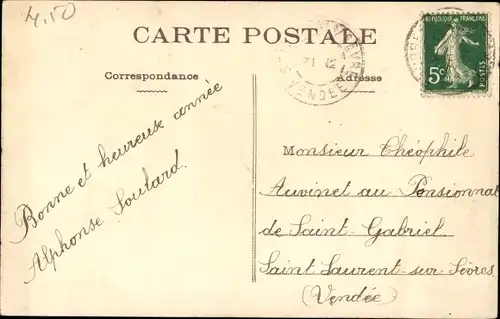 4,50
CARTE POSTALE
Correspondance
Adresse
RÉPUBLIQUE FRANÇAISE
5c
POSTES
VENDÉE
Bonne et heureuse année
Alphonse Soulard.
Monsieur Théophile
Auvinet au Pensionnat
de Saint-Gabriel
Saint Laurent-sur-Sèvres
(Vendée)